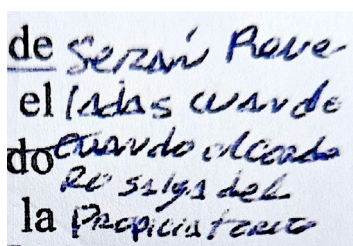 de Serán Reve
el ladas cuande
do cuando el Corde
Ro salga del
la Propiciatorio